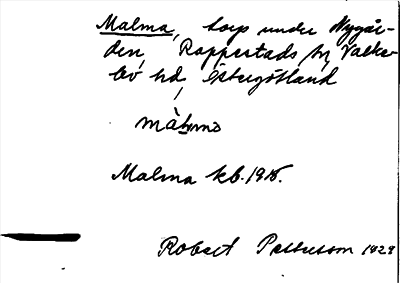 Malma, torp under Nygår-
den, Rappestads sn, Valke-
bo hd, Östergötland
màlma
Malma kb. 1915.
Robert Pettersson 1929